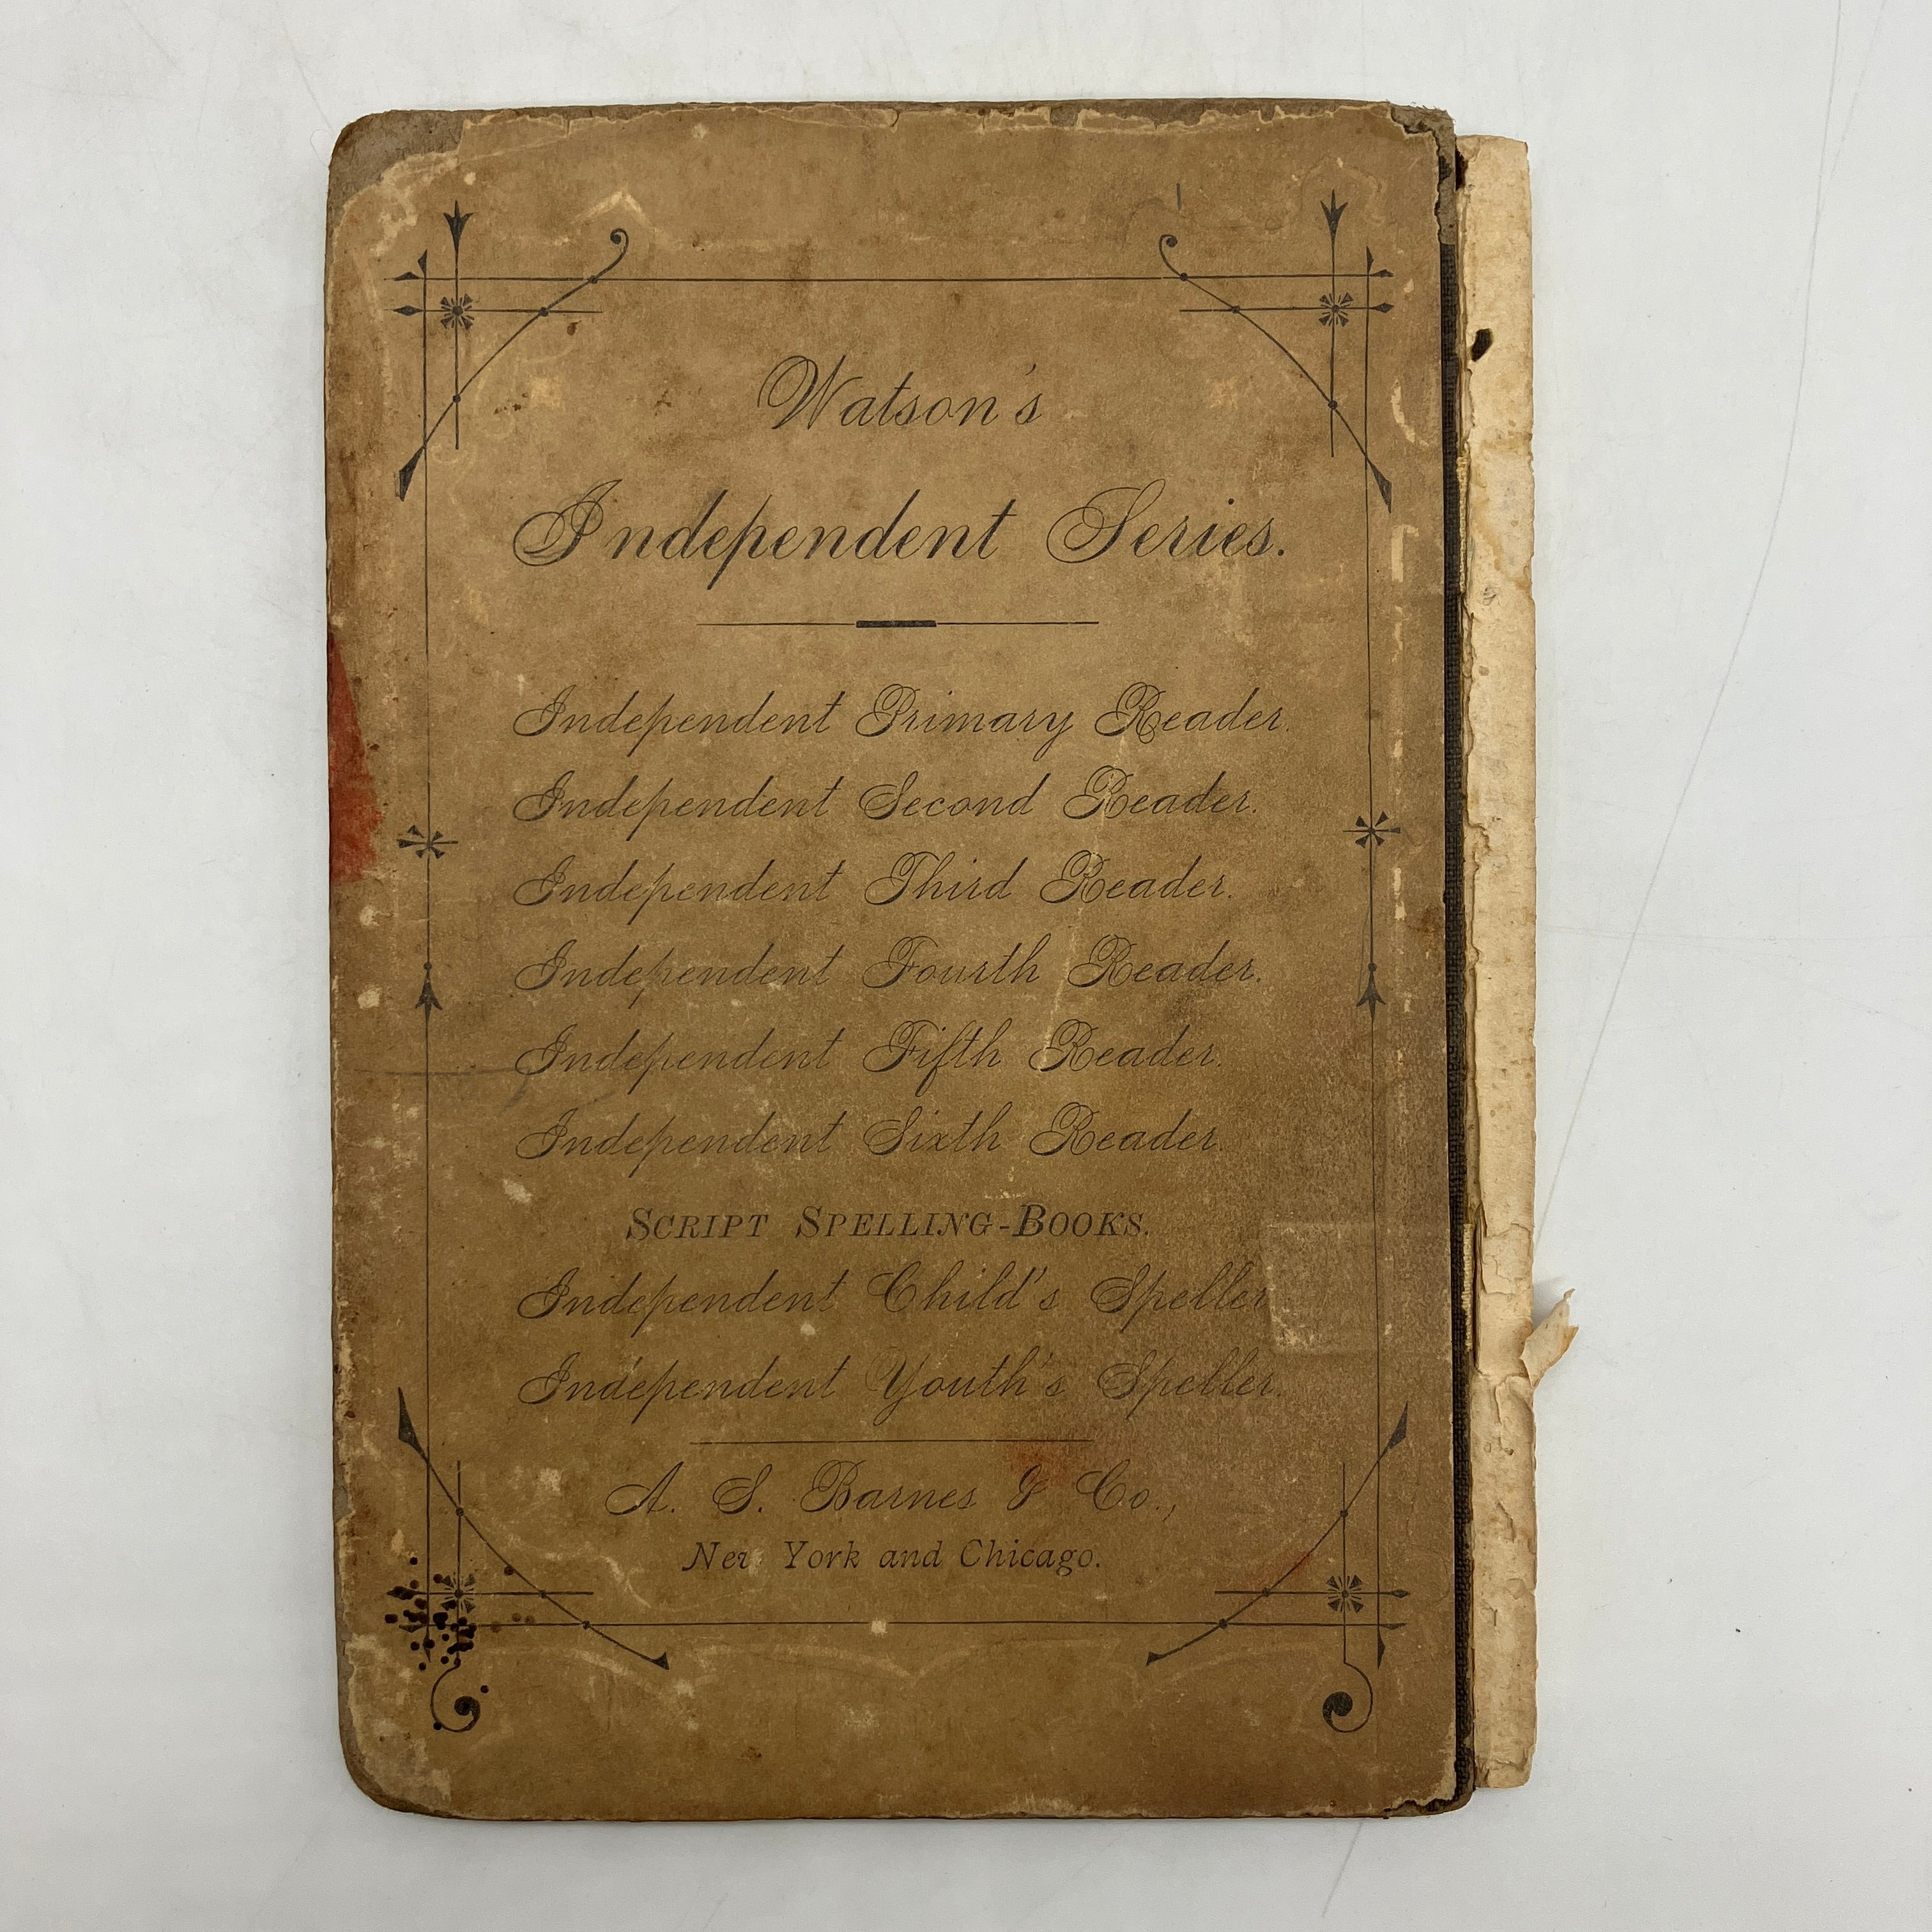 Watson's
Independent Series.
Independent Primary Reader.
Independent Second Reader.
Independent Third Reader.
Independent Fourth Reader.
Independent Fifth Reader.
Independent Sixth Reader.
SCRIPT SPELLING-BOOKS.
Independent Child's Speller
Independent Youth's Speller.
A. S. Barnes & Co.,
New York and Chicago.